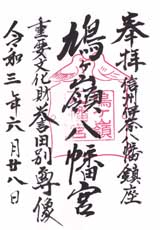 奉拝
信州伊奈八幡鎮座
鳩ヶ嶺八幡宮
重要文化財誉田別尊像
令和三年六月廿八日